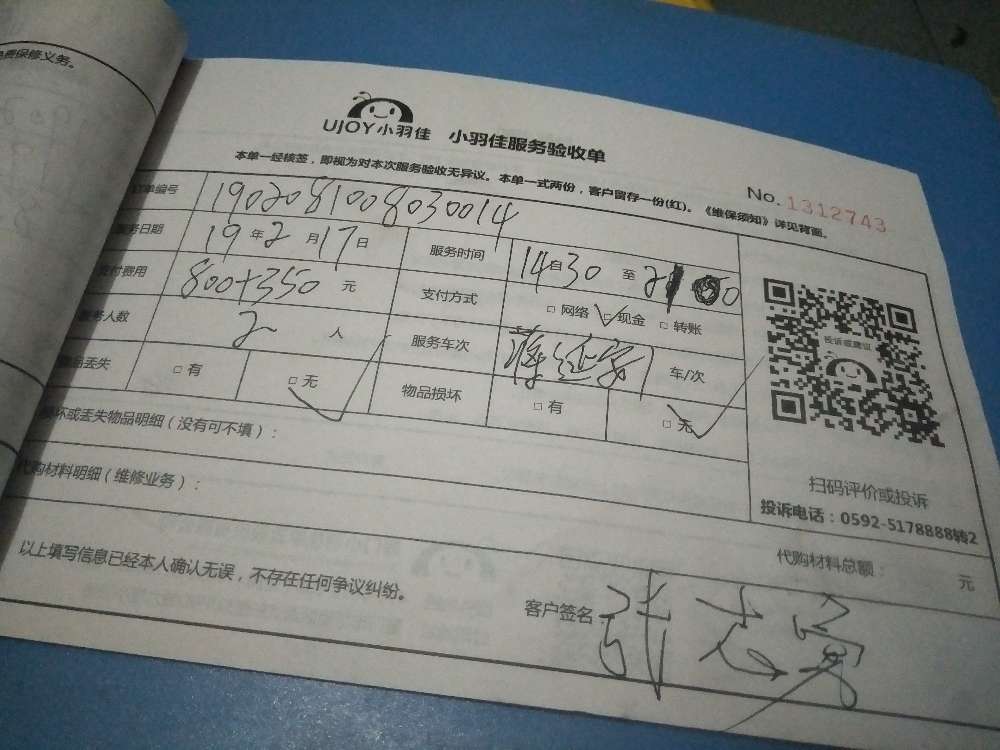 免费保修义务。
UJOY小羽佳 小羽佳服务验收单
本单一经核签，即视为对本次服务验收无异议。本单一式两份，客户留存一份(红)。《维保须知》详见背面。
No. 1312743
订单编号 1902081008030014
服务日期 19年2月17日 服务时间 14点30至21:00
支付费用 800+350元 支付方式 □网络 □现金 □转账
服务人数 2人 服务车次 车/次
物品丢失 □有 □无 物品损坏 □有 □无
投诉或建议
损坏或丢失物品明细（没有可不填）：
扫码评价或投诉
代购材料明细（维修业务）：
投诉电话：0592-5178888转2
代购材料总额： 元
以上填写信息已经本人确认无误，不存在任何争议纠纷。
客户签名：